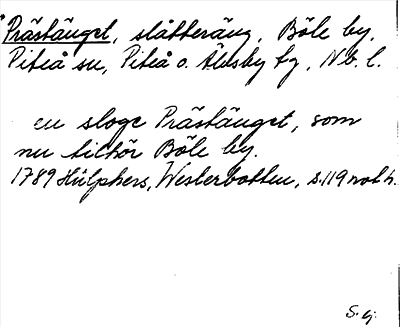 "Prästänget, slåtteräng, Böle by,
Piteå sn, Piteå o. Älvsby tg, Nb. l.
en sloge Prästänget, som
nu tilhör Böle by.
1789 Hülphers, Westerbotten, s. 119 not h.
S. g.